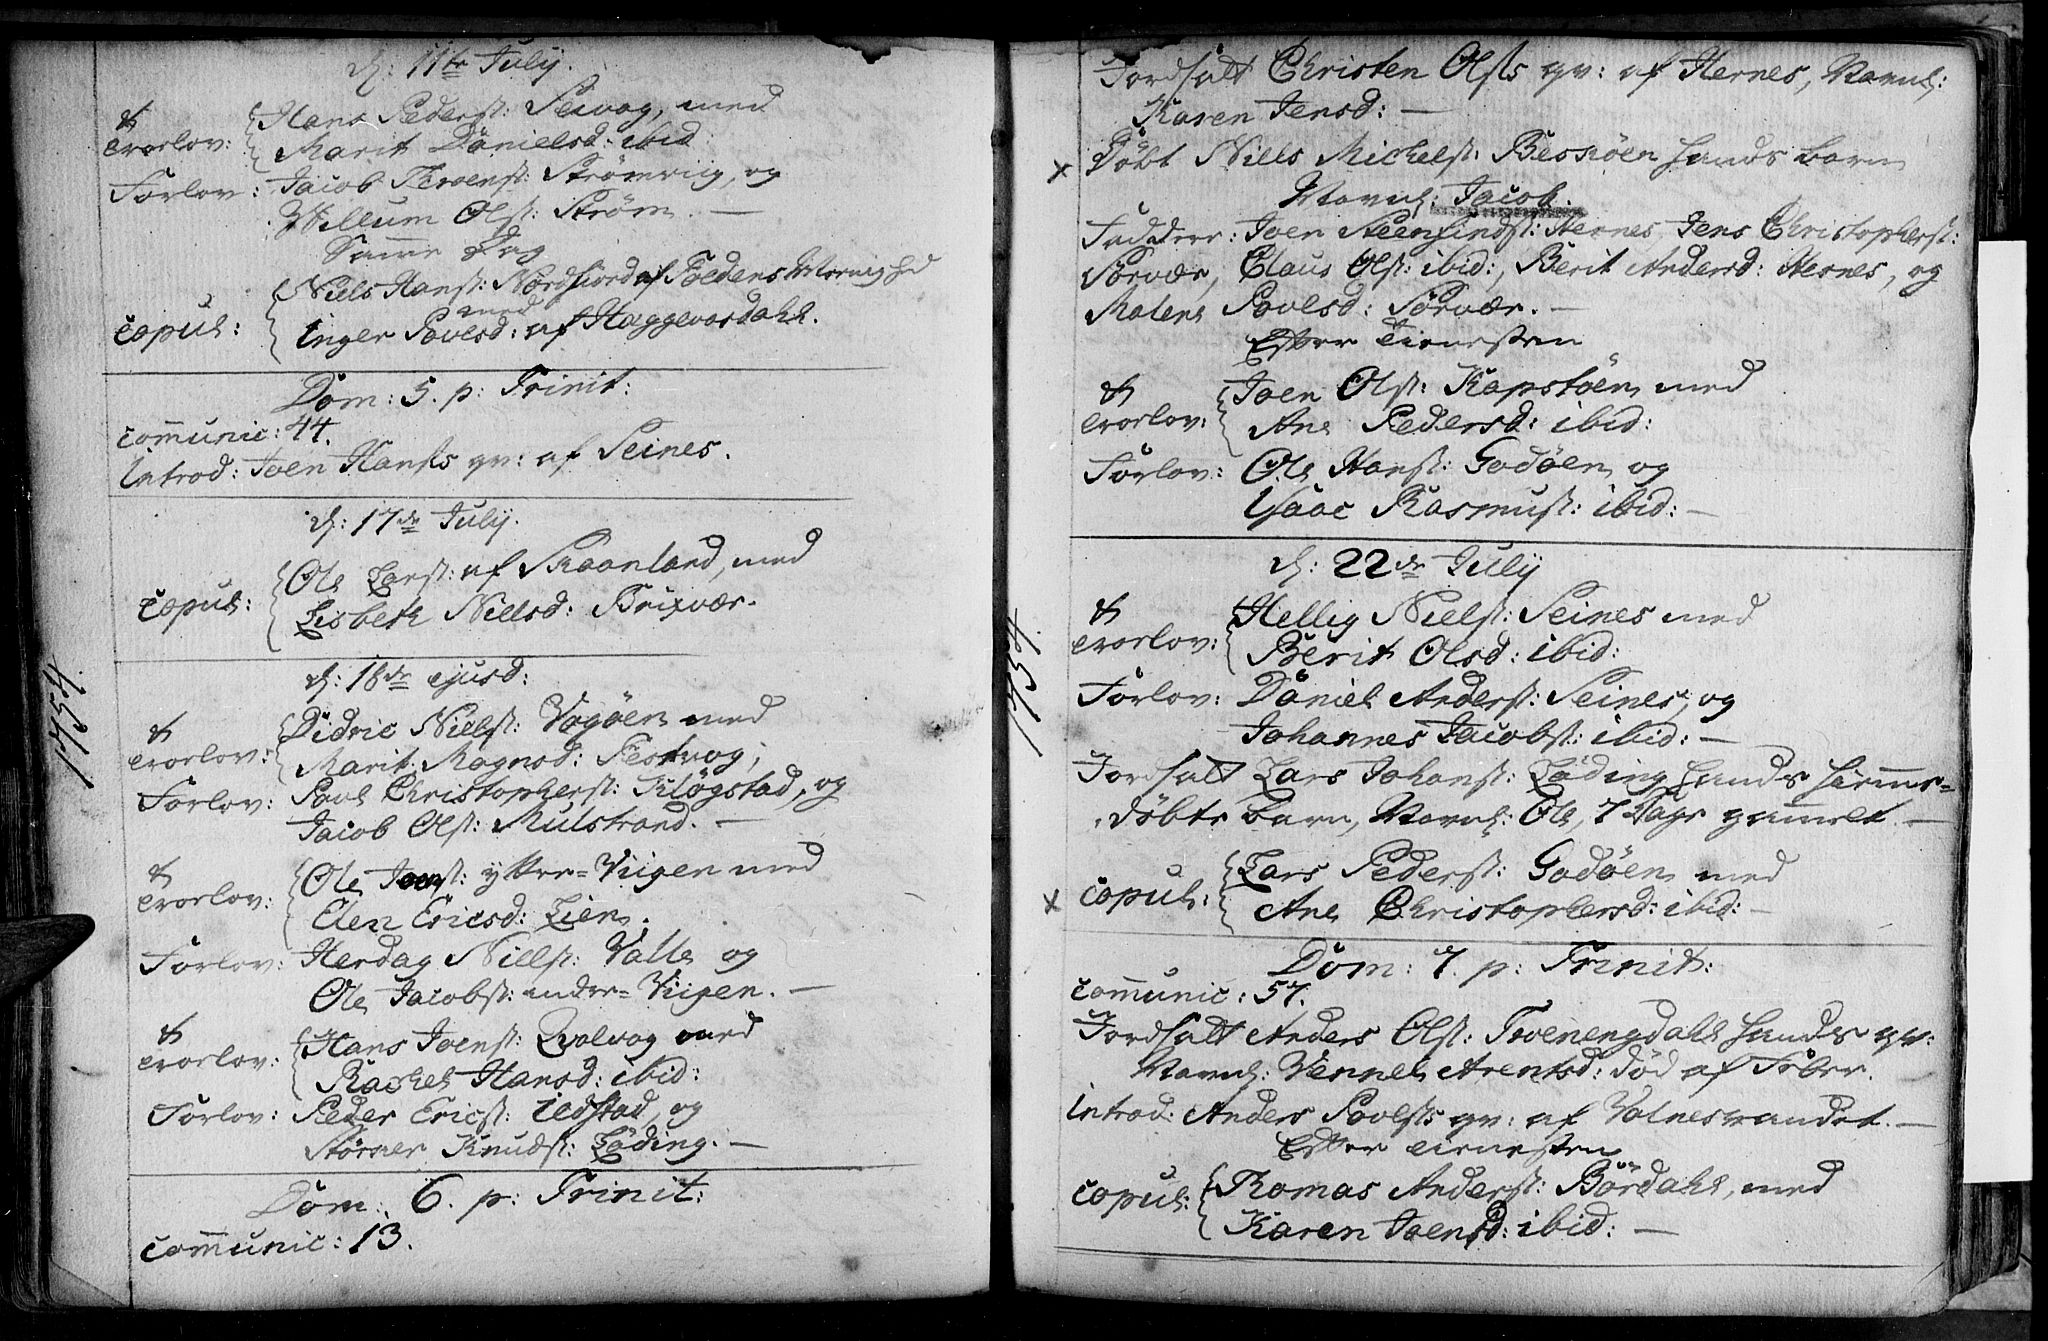 1754.
d: 11te July.
trorlov: Hans Peders: Seivog, med
Marit Danielsd: ibid
Forlov: Jacob Iversen: Strømviig, og
Willum Ols: Strøm. —
Samme Dag
Niels Hans: Nordfiord af Foldens Menighed
copul: med
Inger Povelsd: af Haggevardahl.
Dom: 5. p: Trinit:
communic: 44.
Introd: Joen Hans:s qv: af Seines.
d: 17de July.
Ole Lars: af Skaanland, med
copul: Lisbeth Nielsd: Brixvær.
d: 18de ejusd:
trorlov: Didric Niels: Vogøen med
Marit Magnsd: Festvog;
Forlov: Povl Christophers: Kløgstad, og
Jacob Ols: Mulstrand. —
trorlov: Ole Joens: yttre=Viigen med
Elen Ericsd: Lien.
Forlov: Herdag Niels: Valle og
Ole Jacobs: indre=Viigen. —
trorlov: Hans Joens: Qvalvog med
Rachel Hansd: ibid:
Forlov: Peder Erics: Ildstad, og
Størker Knuds: Løding. —
Dom: 6. p: Trinit:
communic: 13.
1754.
Jordfalt Christen Ols:s qv: af Hernes, Navnl:
Karen Jensd: —
x Døbt Niels Michels: Beskøen hands barn
Navnl: Jacob.
Faddere: Joen Hernes, Jens Christophers:
Sørvær, Claus Ols: ibid:, Berit Andersd: Hernes, og
Malene Povelsd: Sørvær. —
Efter Tienesten
trorlov: Joen Ols: Kapstøen med
Ane Pedersd: ibid:
Forlov: Ole Hans: Godøen og
Isaac Rasmus: ibid: —
d: 22de July
trorlov: Hellig Niels: Seines med
Berit Olsd: ibid:
Forlov: Daniel Anders: Seines, og
Johannes Jacobs: ibid: —
Jordfalt Lars Johans: Løding hands hiemme=
døbte barn, Navnl: Ole, 7 Dage gammel. —
Lars Peders: Godøen med
x copul: Ane Christophersd: ibid: —
Dom: 7. p: Trinit:
communic: 57.
Jordfalt Anders Ols: Tverengdahl hands qv:
Navnl: Vennel Arentsd: død af Feber.
Introd: Anders Povels:s qv: af Valnesvandet. —
Efter Tienesten
copul: Thomas Anders: Børdahl, med
Karen Joensd: ibid: —